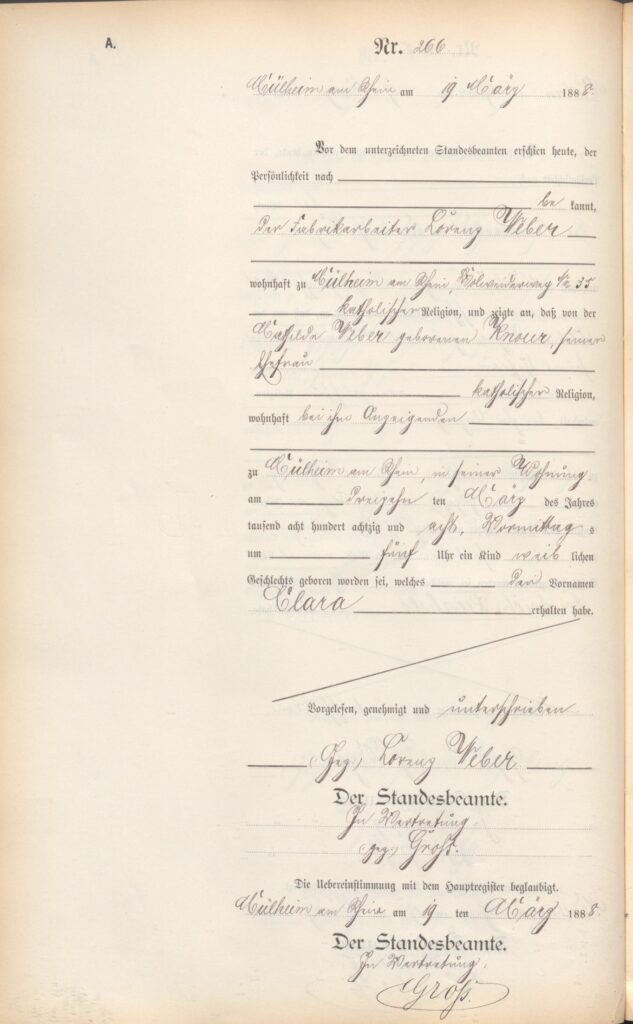 A.
Nr. 266
Mülheim am Rhein am 19 März 1888.
Vor dem unterzeichneten Standesbeamten erschien heute, der
Persönlichkeit nach
be kannt,
der Fabrikarbeiter Lorenz Weber
wohnhaft zu Mülheim am Rhein, No 35
katholischer Religion, und zeigte an, daß von der
Mathilde Weber geborenen Knour, seiner
Ehefrau
katholischer Religion,
wohnhaft bei ihm Anzeigenden
zu Mülheim am Rhein, in seiner Wohnung
am dreizehn ten März des Jahres
tausend acht hundert achtzig und acht, Vormittag s
um fünf Uhr ein Kind weib lichen
Geschlechts geboren worden sei, welches den Vornamen
Clara erhalten habe.
Vorgelesen, genehmigt und unterschrieben
(gez.) Lorenz Weber
Der Standesbeamte.
In Vertretung
(gez.) Groß.
Die Uebereinstimmung mit dem Hauptregister beglaubigt.
Mülheim am Rhein am 19 ten März 1888.
Der Standesbeamte.
In Vertretung.
Groß.